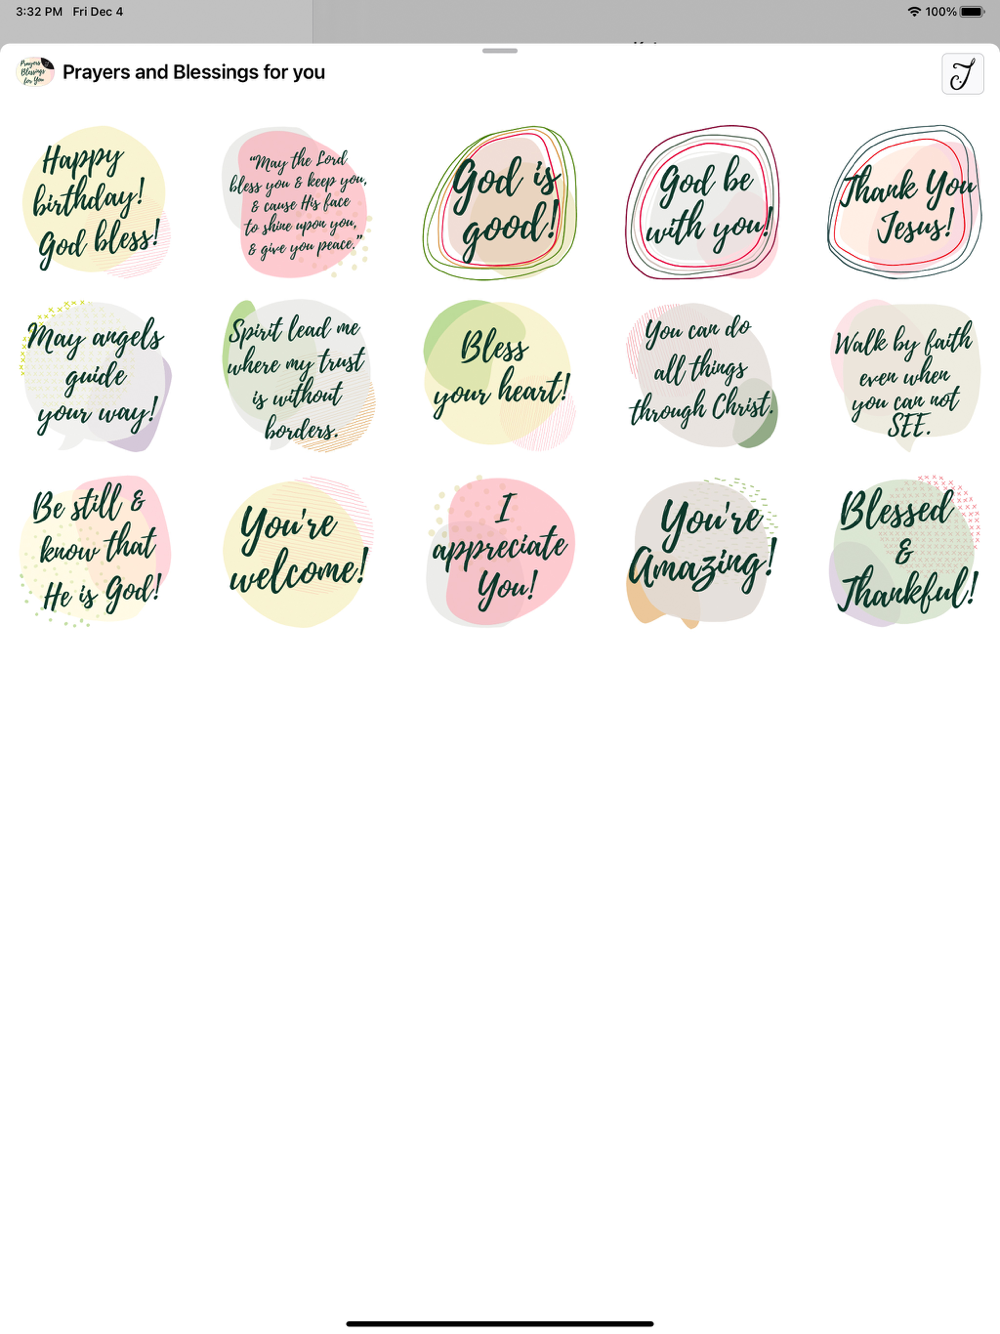 3:32 PM Fri Dec 4
100%
Prayers
Blessings
for You
Prayers and Blessings for you
J
Happy
birthday!
God bless!
“May the Lord
bless you & keep you,
& cause His face
to shine upon you,
& give you peace.”
God is
good!
God be
with you!
Thank You
Jesus!
May angels
guide
your way!
Spirit lead me
where my trust
is without
borders.
Bless
your heart!
You can do
all things
through Christ.
Walk by faith
even when
you can not
SEE.
Be still &
know that
He is God!
You're
welcome!
I
appreciate
You!
You're
Amazing!
Blessed
&
Thankful!